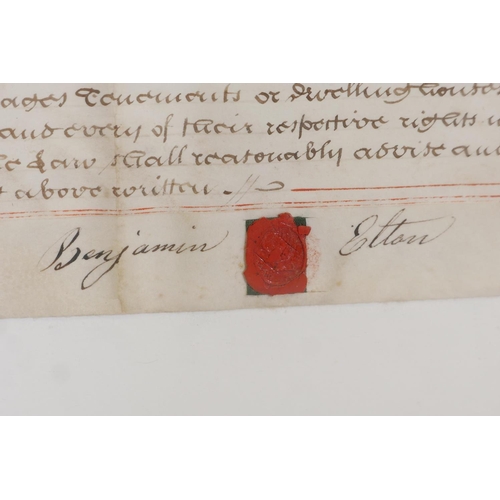 ages Tenements or dwelling houses
and every of their respective rights
Law shall reasonably advise and
above written
Benjamin Elton